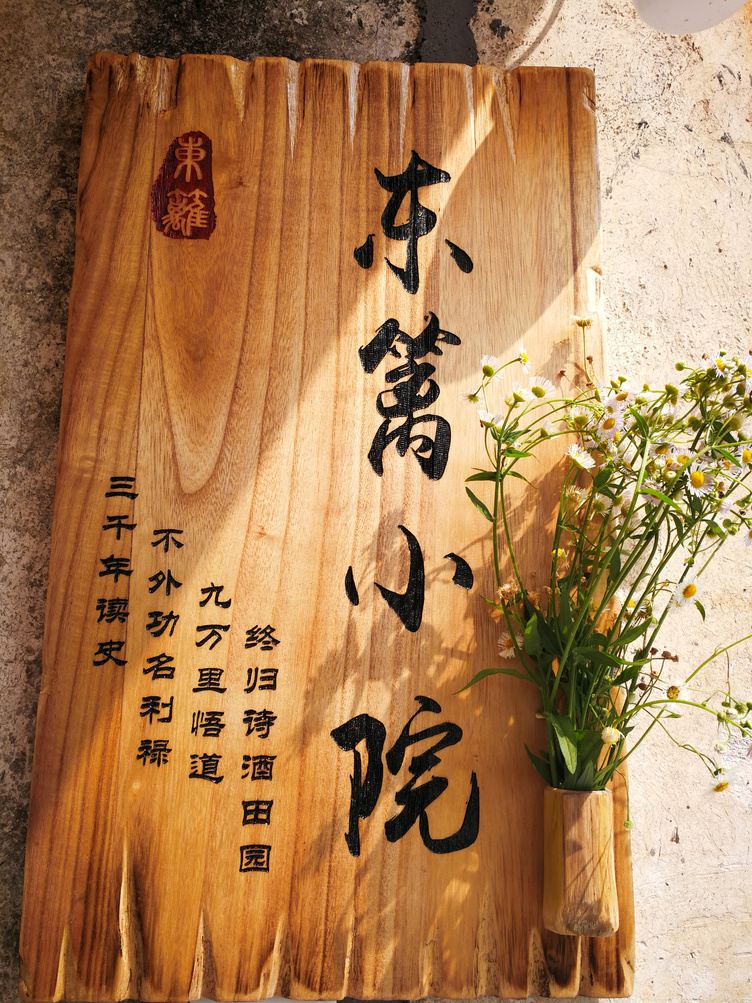 东篱小院
東籬
三千年读史
不外功名利禄
九万里悟道
终归诗酒田园